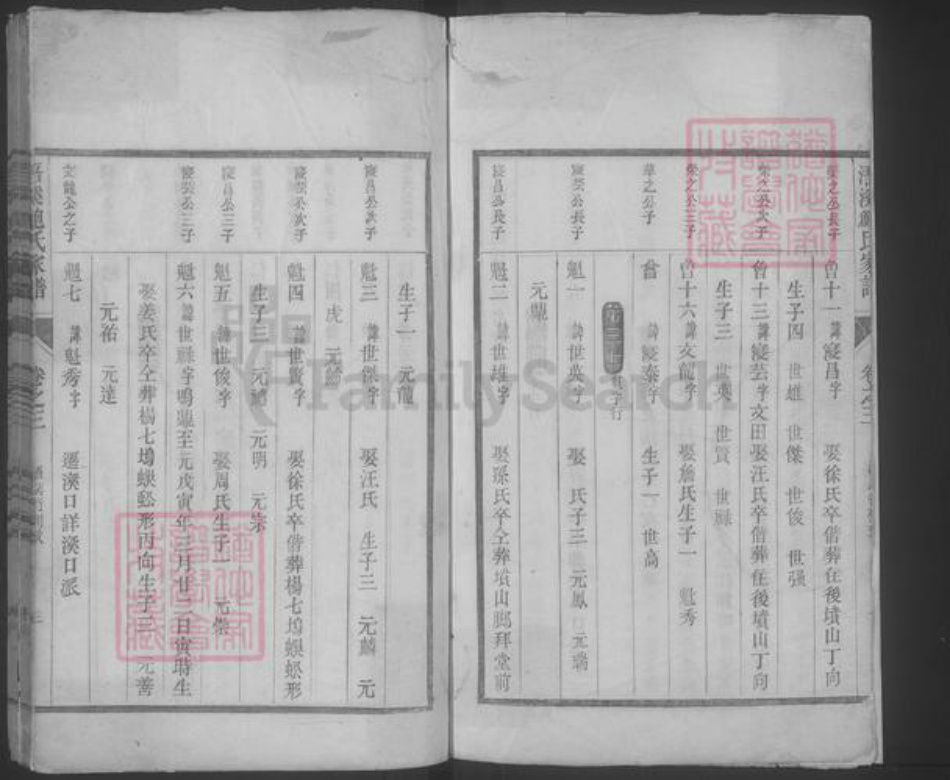 榮之公長子
魯十一 諱凝昌字 娶徐氏卒偕葬在後墳山丁向
生子四 世雄 世傑 世俊 世强
榮之公次子
魯十三 諱凝芸字文田娶汪氏卒偕葬在後墳山丁向
生子三 世英 世賢 世祿
榮之公三子
魯十六 諱文龍字 娶詹氏生子一 魁秀
華之公子
諱凝泰字 生子一 世高
魁字行
凝芸公長子
魁一 諱世英字 娶 氏子三 元鳳 元瑞
元
凝昌公長子
魁二 諱世雄字 娶孫氏卒仝葬墳山 拜堂前
生子一 元龍
凝昌公次子
魁三 諱世傑字 娶汪氏 生子三 元麟 元
虎 元
凝芸公次子
魁四 諱世賢字 娶徐氏卒偕葬楊七塢蜈蚣形
生子三 元 元明 元崇
凝昌公三子
魁五 諱世俊字 娶周氏生子一 元
凝芸公三子
魁六 諱世祿字鳴 至元戊寅年三月廿二日寅時生
娶姜氏卒仝葬楊七塢蜈蚣形丙向生子三 元善
元祐 元達
文龍公之子
魁七 諱魁秀字 遷溪口詳溪口派
氏家譜
卷之三
FamilySearch